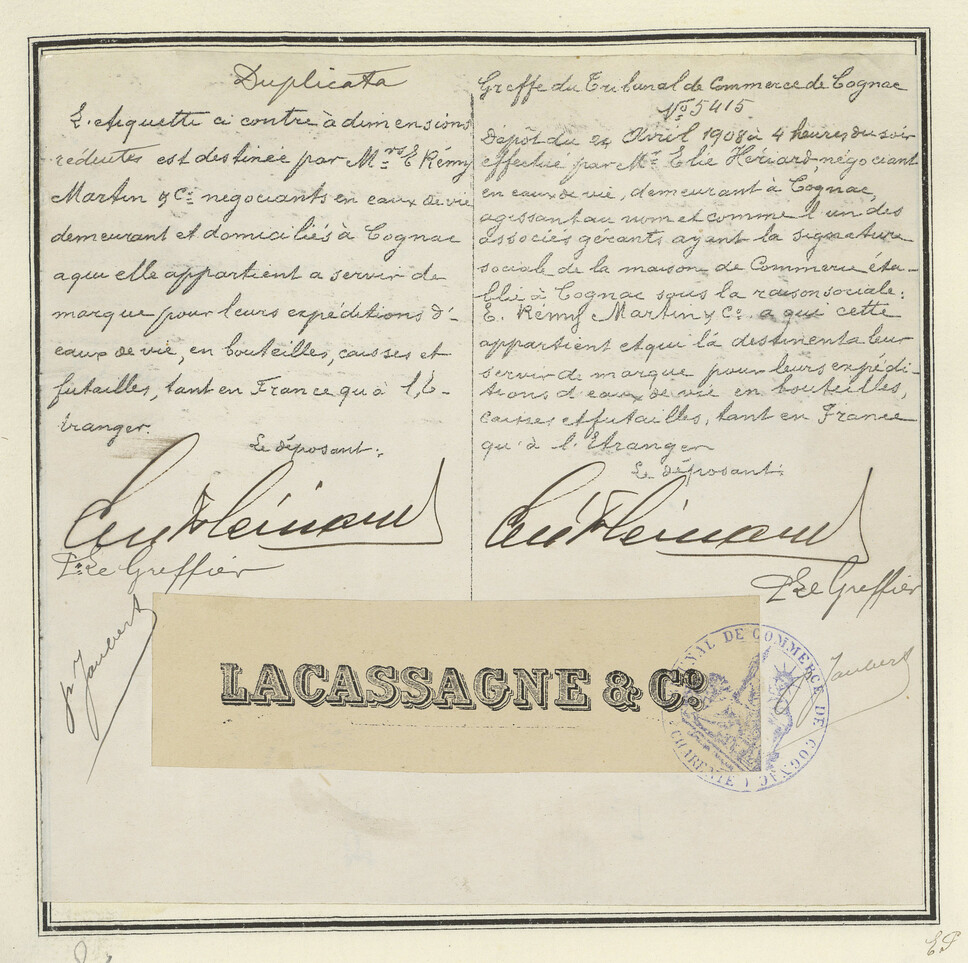 Duplicata
L'etiquette ci contre à dimensions
réduites est destinée par Mrs E. Rémy
Martin & Cie negociants en eaux de vie
demeurant et domiciliés à Cognac
a qui elle appartient a servir de
marque pour leurs expéditions d'
eaux de vie, en bouteilles, caisses et
futailles, tant en France qu'à l'É-
tranger.
Le déposant:
Pr Le Greffier
Jaubert
Greffe du Tribunal de Commerce de Cognac
No 5415
Dépôt du Avril 1908 à 4 heures du soir
effectué par Mr Elie Hériard négociant
en eaux de vie, demeurant à Cognac,
agissant au nom et comme l'un des
associés gérants ayant la signature
sociale de la maison de Commerce éta-
blie à Cognac sous la raison sociale:
E. Rémy Martin & Co. a qui cette
appartient et qui la destinent a leur
servir de marque pour leurs expédi-
tions d'eaux de vie en bouteilles,
caisses et futailles, tant en France
qu'à l'Etranger
Le déposant:
Pr Le Greffier
Jaubert
LACASSAGNE & Co
TRIBUNAL DE COMMERCE DE COGNAC
(CHARENTE)
E.P